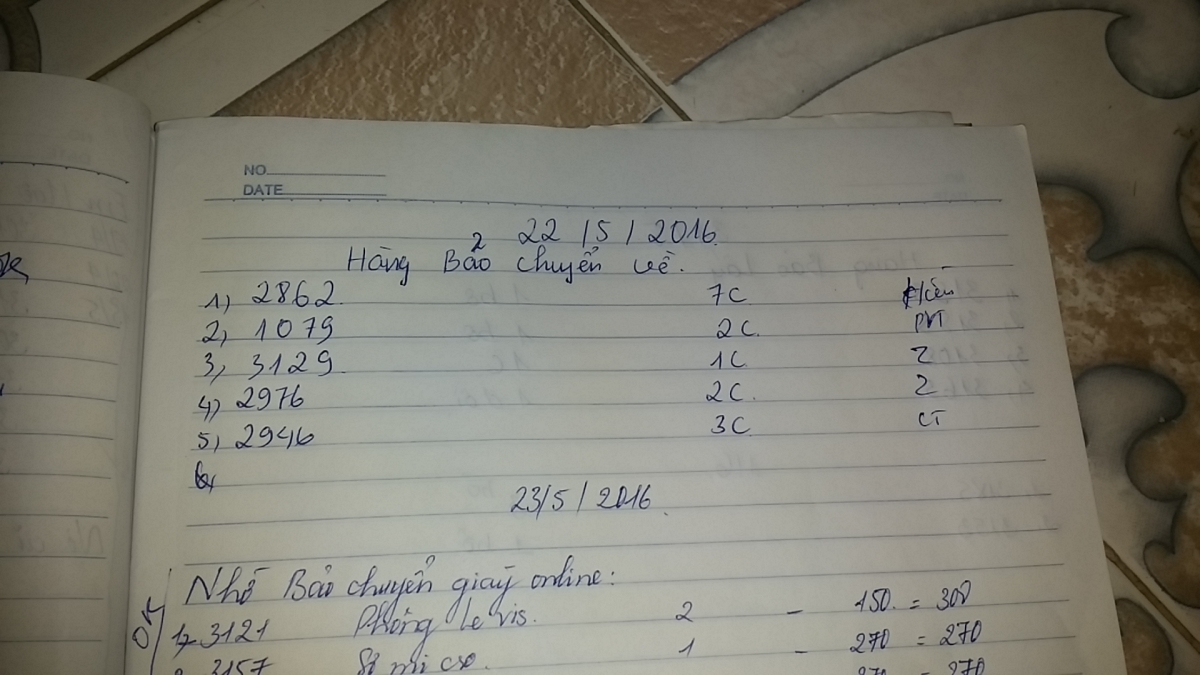 NO
DATE
22 / 5 / 2016.
Hàng Bảo chuyển về.
1) 2862. 7C
2) 1079 2C. PVT
3) 3129. 1C 2
4) 2976 2C. 2
5) 2946 3C CT
23/5 / 2016.
Nhờ Bảo chuyển giày online:
OK
1) 3121 Phông Levis. 2 - 150. = 300
3157 1 - 270 = 270
270 = 270